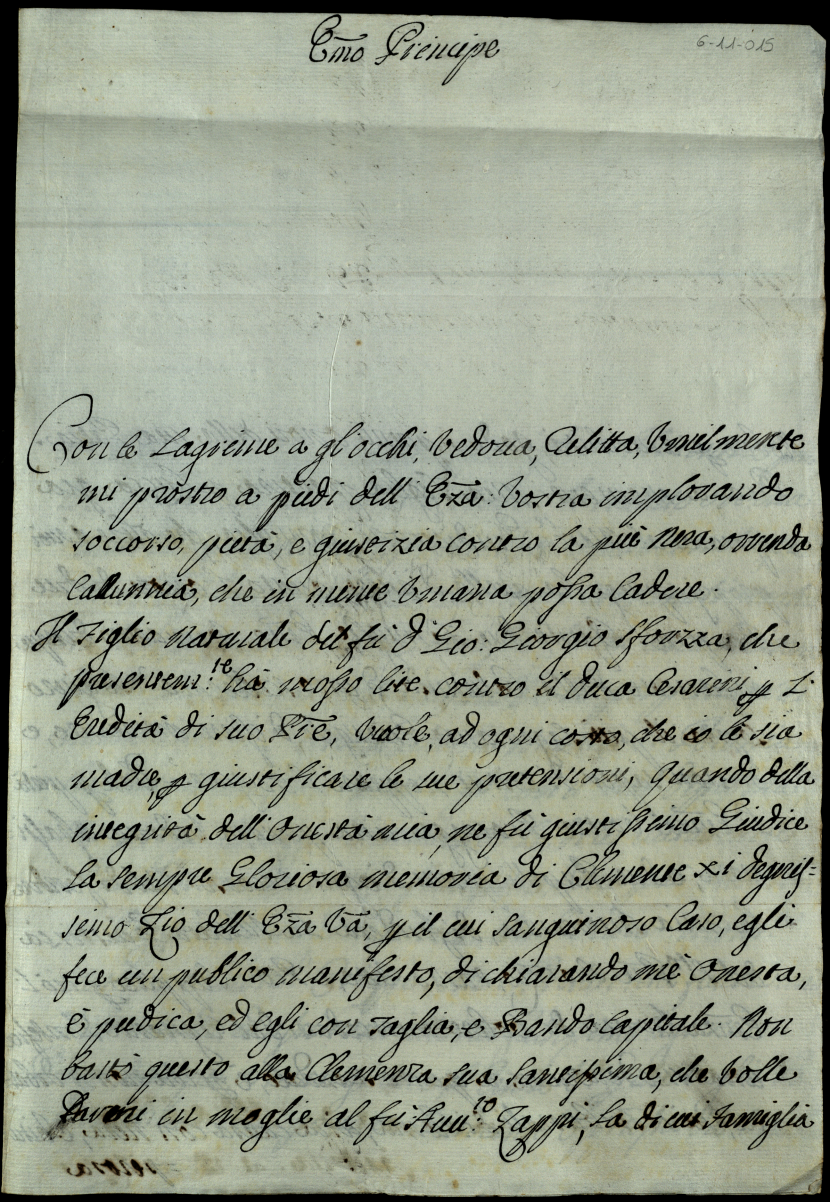 Em̅o Principe
6-11-015
Con le Lagrime a gl'occhi, Vedova, Relitta, Umilmente
mi prostro a piedi dell' Ecc̅za: Vostra implorando
soccorso, pietà, e giustizia contro la più nera, orrenda
Calunnia, che in mente Umana possa Cadere.
Il Figlio Naturale del fù D. Gio: Georgio Sforzza, che
presentem:te hà mosso lite contro il Duca Cesarini p L'
Eredità di suo Pr̅e, Vuole, ad ogni costo, che io le sia
madre, p giustificare le sue pretensioni, quando della
integrità dell' Onestà mia, ne fù giustissimo Giudice
La sempre Gloriosa memoria di Clemente xi degnis=
simo Zio dell' Ecc̅za Vr̅a, p il cui sanguinoso Caso, egli
fece un publico manifesto, dichiarando mè Onesta,
è pudica, ed egli con Taglia, e Bando Capitale. Non
bastò questo alla Clemenza sua Santissima, che Volle
Darmi in moglie al fù Auu:to Zappi, La di cui Famiglia